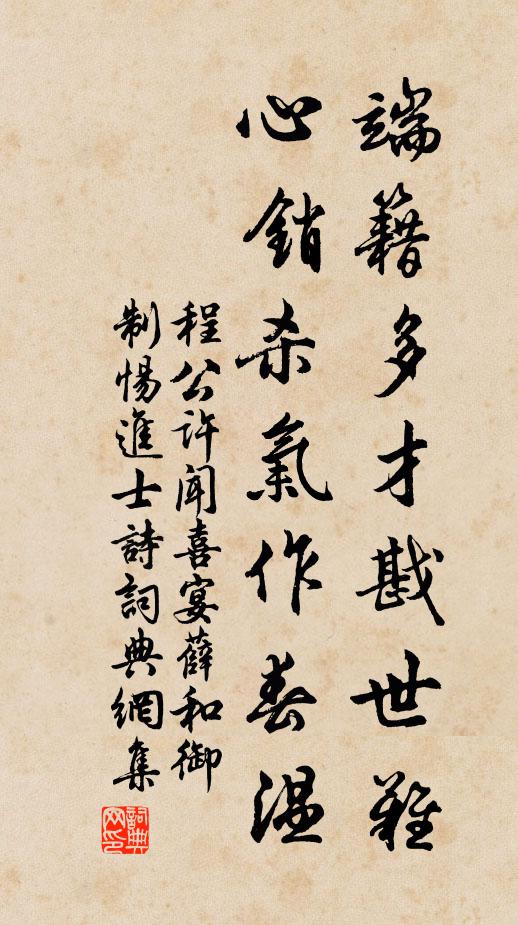 端籍多才戡世難
心銷杀氣作春温
程公許聞喜宴薛和御
制惕進士詩詞典網集
詞典网印